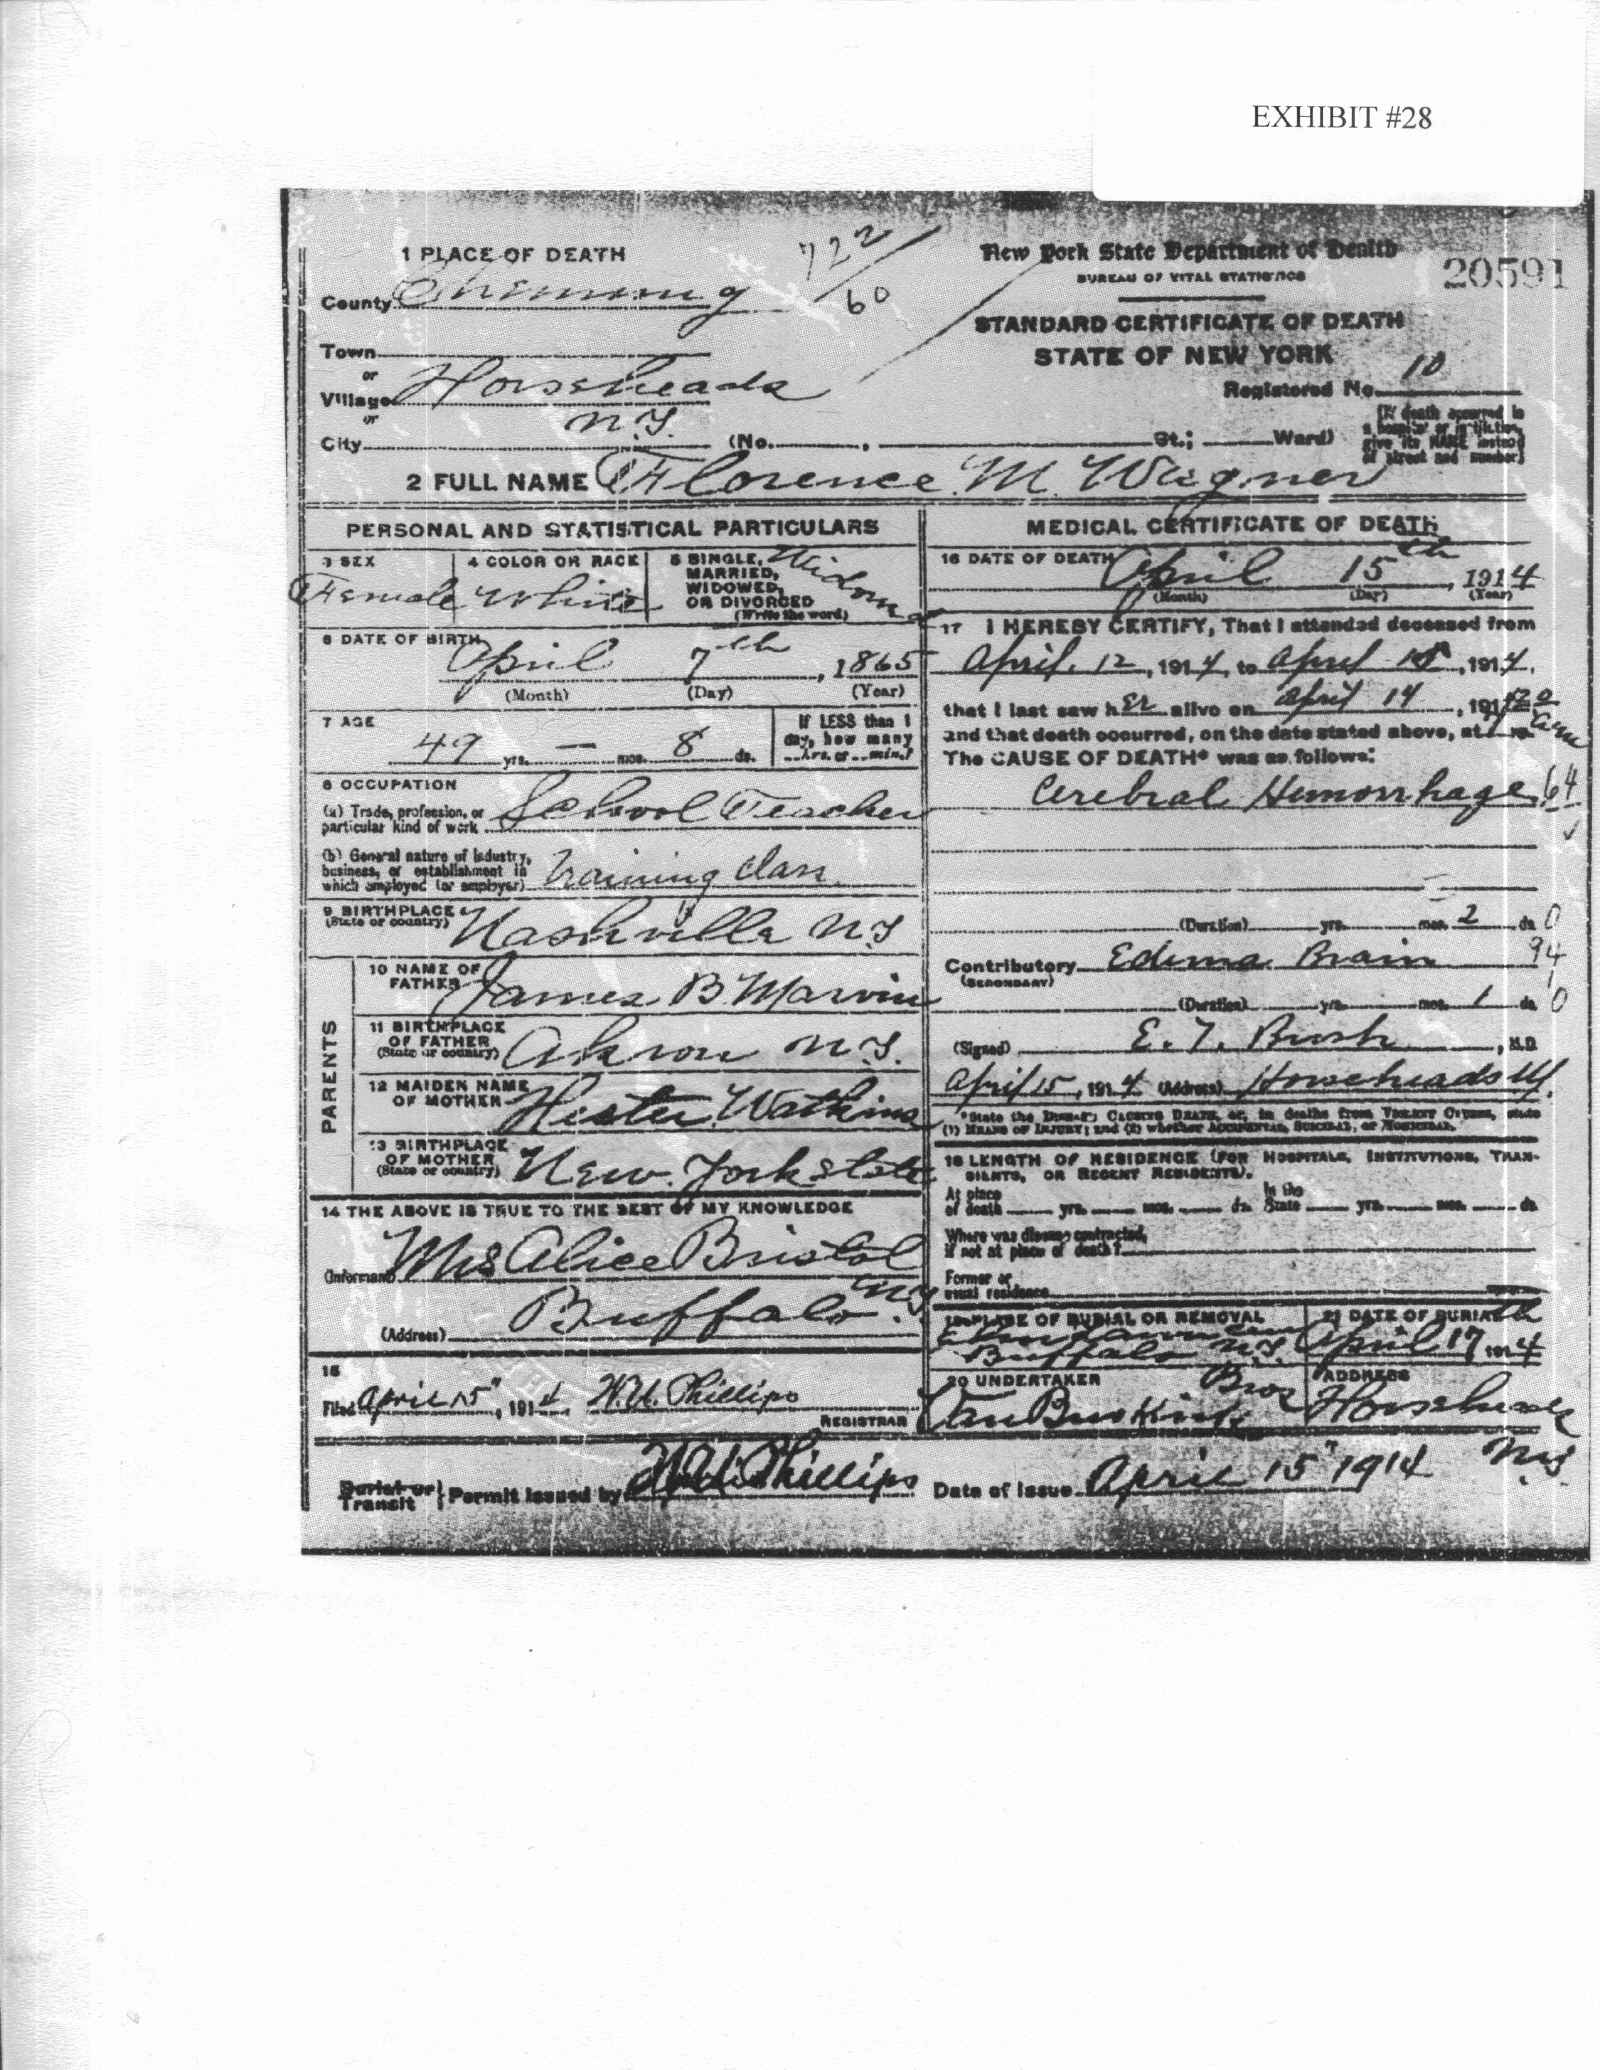 EXHIBIT #28
1 PLACE OF DEATH
722
60
New York State Department of Health
BUREAU OF VITAL STATISTICS
20591
County Chemung
STANDARD CERTIFICATE OF DEATH
STATE OF NEW YORK
Town
or
Village Horseheads
or
N.Y.
City (No. , St.; Ward)
Registered No. 10
(If death occurred in
a hospital or institution,
give its NAME instead
of street and number)
2 FULL NAME Florence M. Wagner
PERSONAL AND STATISTICAL PARTICULARS
3 SEX
Female
4 COLOR OR RACE
White
5 SINGLE,
MARRIED,
WIDOWED,
OR DIVORCED
(Write the word)
Widowed
6 DATE OF BIRTH
April 7th, 1865
(Month) (Day) (Year)
7 AGE
49 yrs. — mos. 8 ds.
If LESS than 1
day, how many
hrs. or min.?
8 OCCUPATION
(a) Trade, profession, or
particular kind of work School Teacher
(b) General nature of industry,
business, or establishment in
which employed (or employer) Training Class
9 BIRTHPLACE
(State or country) Nashville N.Y
PARENTS
10 NAME OF
FATHER James B Marvin
11 BIRTHPLACE
OF FATHER
(State or country) Akron N.Y.
12 MAIDEN NAME
OF MOTHER Hester Watkins
13 BIRTHPLACE
OF MOTHER
(State or country) New York State
14 THE ABOVE IS TRUE TO THE BEST OF MY KNOWLEDGE
(Informant) Mrs Alice Bristol
(Address) Buffalo N.Y.
15
Filed April 15", 1914 W.H. Phillips
REGISTRAR
MEDICAL CERTIFICATE OF DEATH
16 DATE OF DEATH
April 15th, 1914
(Month) (Day) (Year)
17 I HEREBY CERTIFY, That I attended deceased from
April. 12, 1914, to April 15, 1914,
that I last saw her alive on April 14, 191
and that death occurred, on the date stated above, at am
The CAUSE OF DEATH* was as follows:
Cerebral Hemorrhage 64
(Duration) yrs. mos. 2 ds. 0
Contributory Edema Brain 94
(SECONDARY)
(Duration) yrs. mos. 1 ds. 0
(Signed) E. T. Bush, M.D.
April 15, 1914 (Address) Horseheads
*State the DISEASE CAUSING DEATH, or, in deaths from VIOLENT CAUSES, state
(1) MEANS OF INJURY; and (2) whether ACCIDENTAL, SUICIDAL, or HOMICIDAL.
18 LENGTH OF RESIDENCE (FOR HOSPITALS, INSTITUTIONS, TRAN-
SIENTS, OR RECENT RESIDENTS).
At place
of death yrs. mos. ds. In the
State yrs. mos. ds.
Where was disease contracted,
if not at place of death?
Former or
usual residence
19 PLACE OF BURIAL OR REMOVAL
Buffalo N.Y.
21 DATE OF BURIAL
April 17th 1914
20 UNDERTAKER
Van Buskirk Bros
ADDRESS
Horseheads
N.Y.
Burial or
Transit } Permit issued by W.H. Phillips Date of issue April 15" 1914